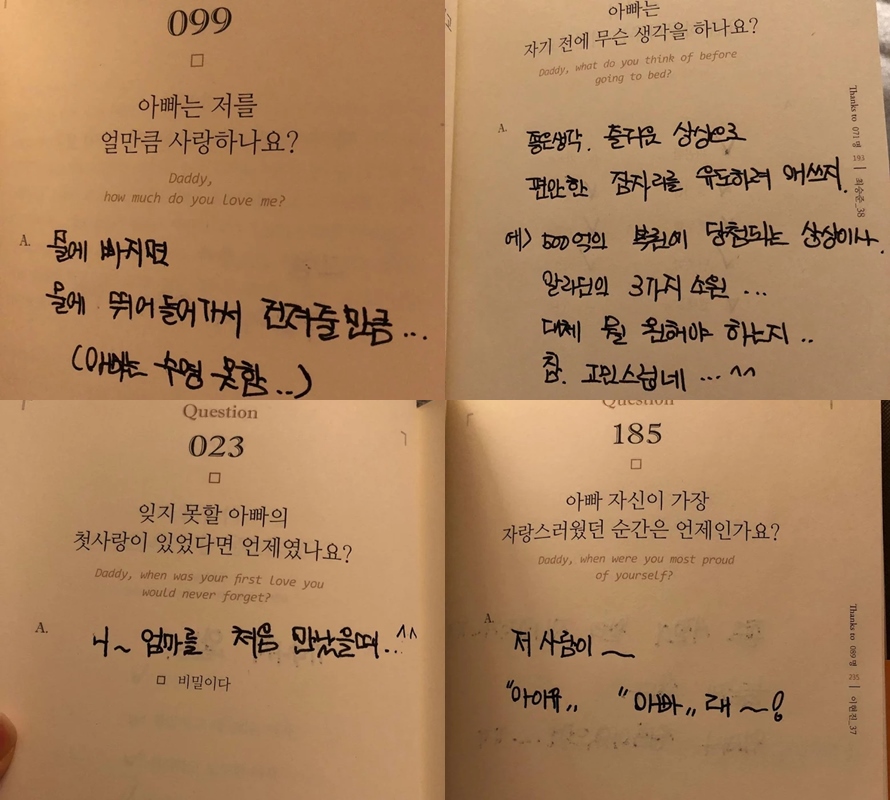 099
아빠는 저를
얼만큼 사랑하나요?
Daddy,
how much do you love me?
A.
물에 빠지면
물에 뛰어들어가서 건져줄 만큼...
(아빠는 수영 못함..)
아빠는
자기 전에 무슨 생각을 하나요?
Daddy, what do you think of before
going to bed?
A.
좋은생각. 즐거운 상상으로
편안한 잠자리를 유도하려 애쓰지.
예) 500억의 복권에 당첨되는 상상이나.
알라딘의 3가지 소원 ...
대체 뭘 원해야 하는지..
참. 고민스럽네 ... ^^
Thanks to 071명 193 | 최승준_38
Question
023
잊지 못할 아빠의
첫사랑이 있었다면 언제였나요?
Daddy, when was your first love you
would never forget?
A.
니~ 엄마를 처음 만났을때..^^
비밀이다
Question
185
아빠 자신이 가장
자랑스러웠던 순간은 언제인가요?
Daddy, when were you most proud
of yourself?
A.
저 사람이 ~
"아이유" "아빠" 래 ~!
Thanks to 089명 235 | 이현진_37